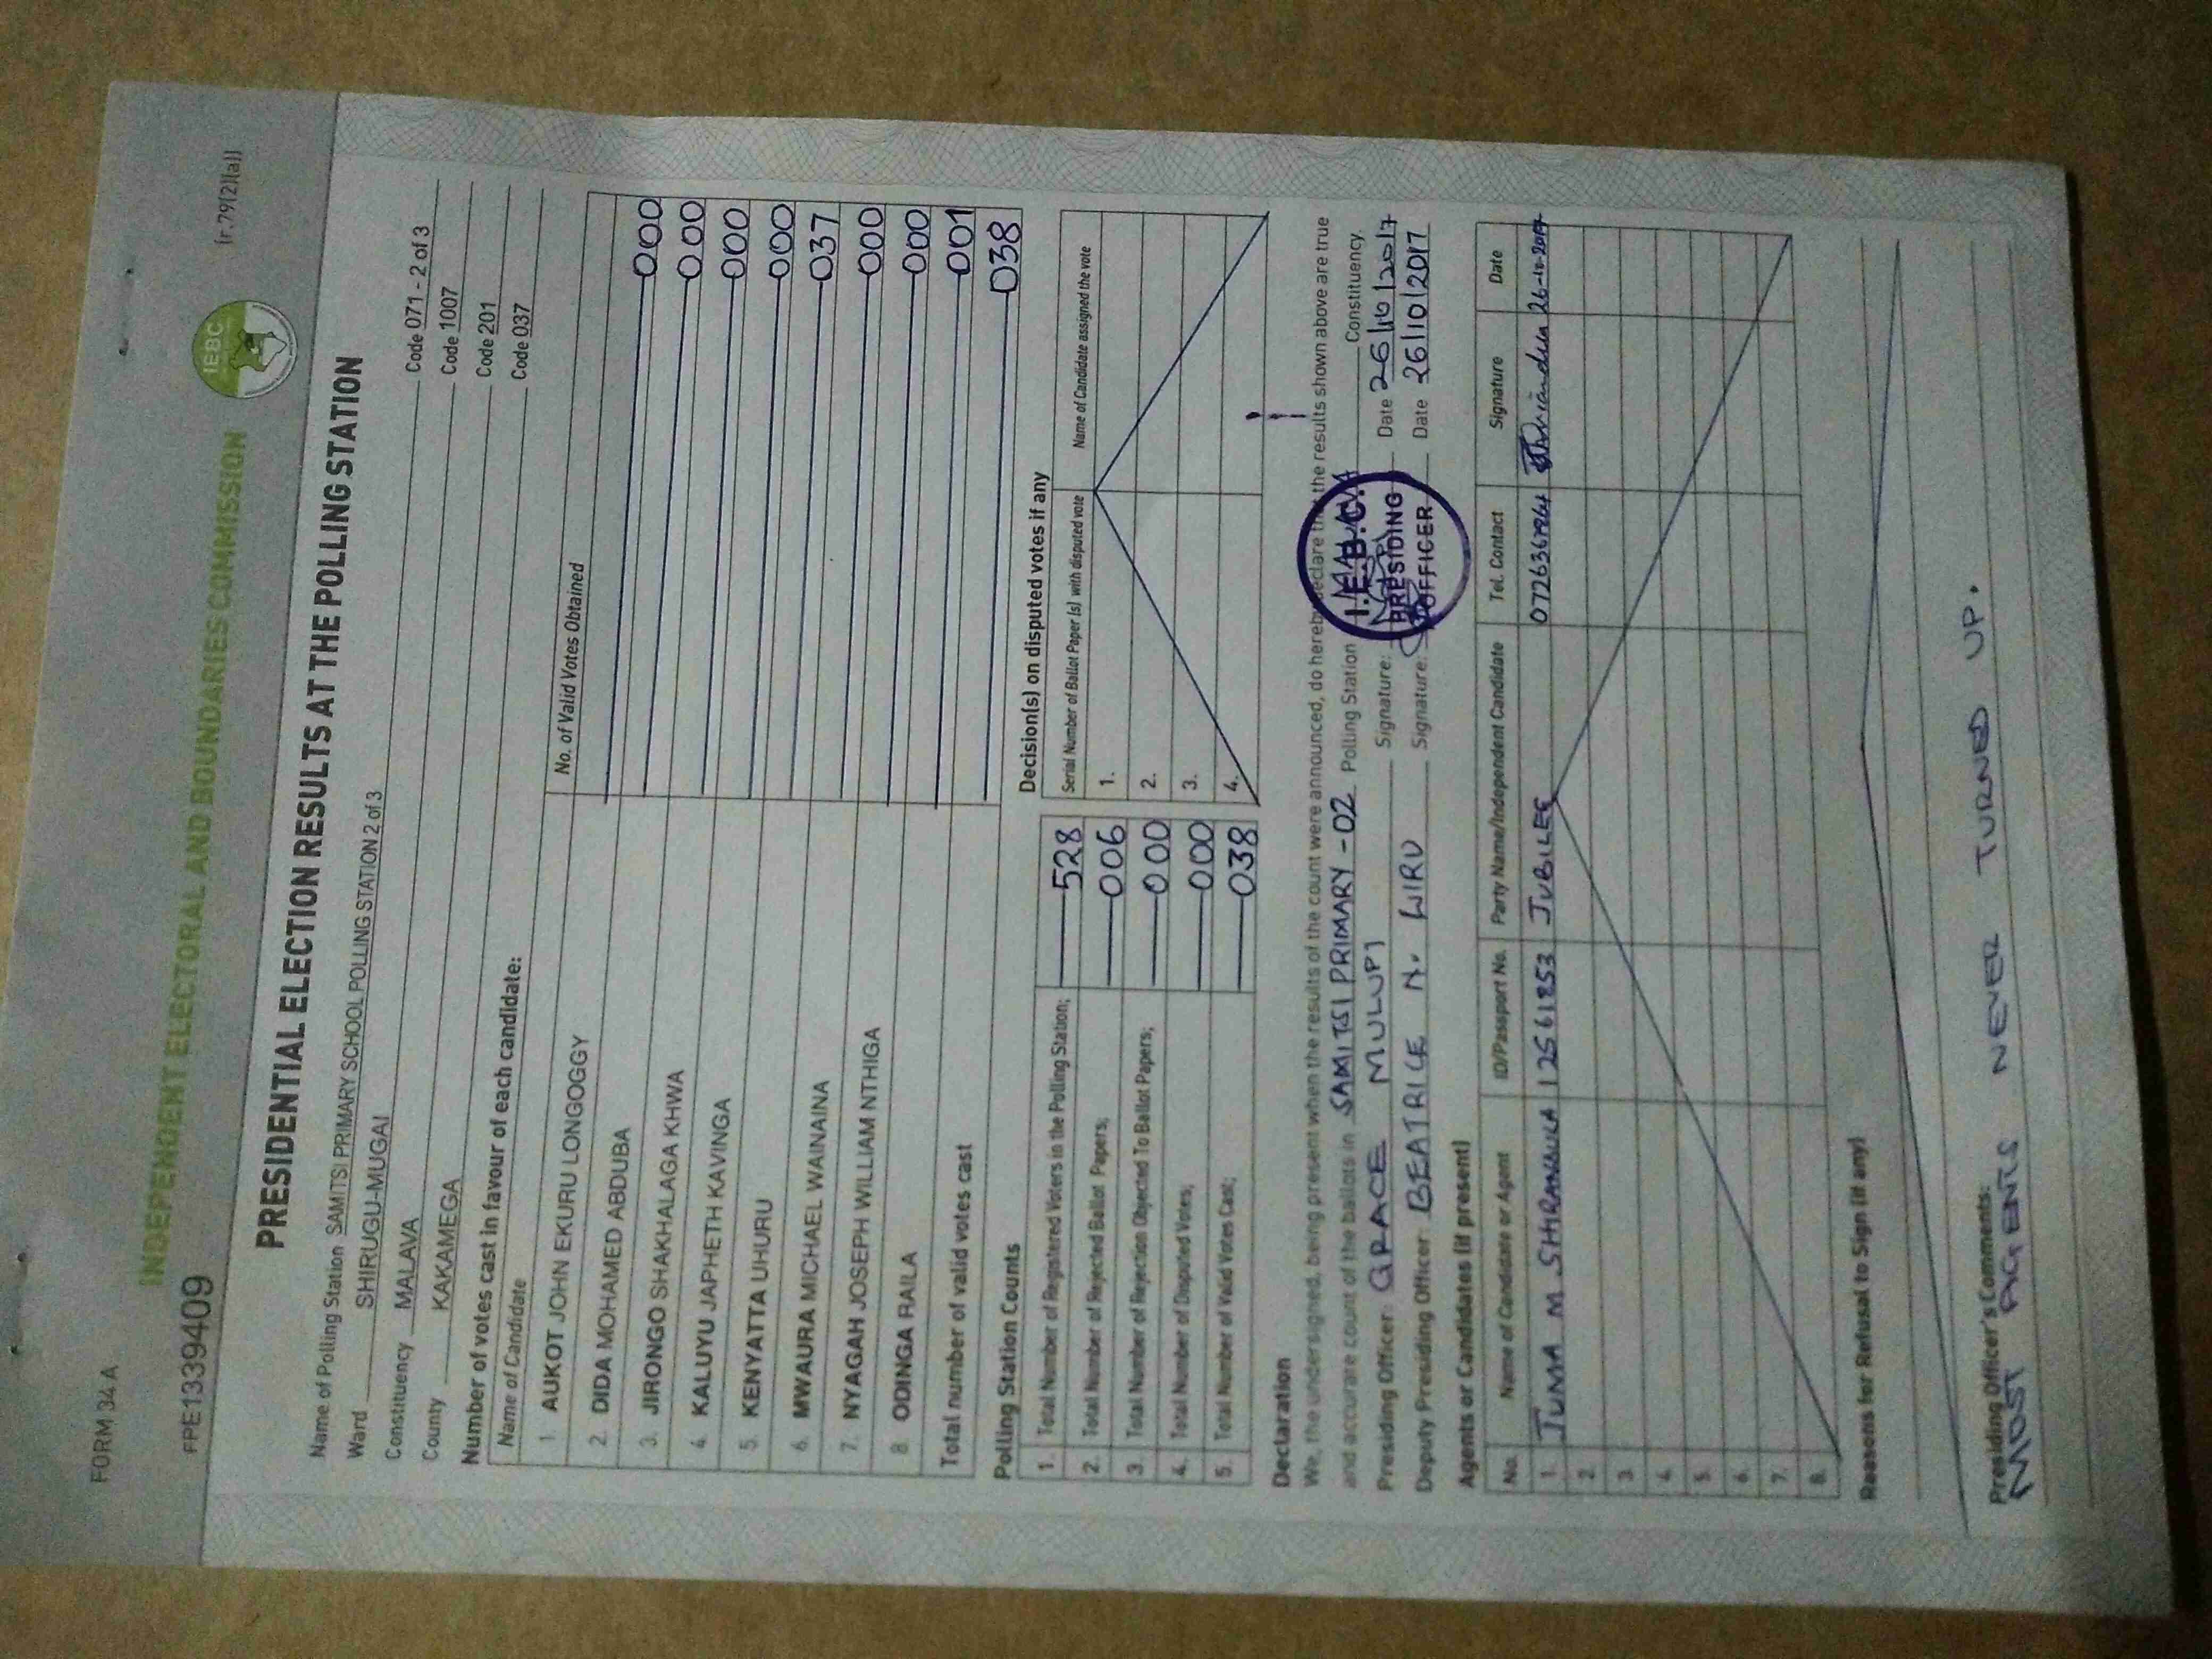 FORM 34 A
(r.79(2)(a))
FPE1339409
INDEPENDENT ELECTORAL AND BOUNDARIES COMMISSION
IEBC
PRESIDENTIAL ELECTION RESULTS AT THE POLLING STATION
Name of Polling Station SAMITSI PRIMARY SCHOOL POLLING STATION 2 of 3 Code 071 - 2 of 3
Ward SHIRUGU-MUGAI Code 1007
Constituency MALAVA Code 201
County KAKAMEGA Code 037
Number of votes cast in favour of each candidate:
Name of Candidate No. of Valid Votes Obtained
1. AUKOT JOHN EKURU LONGOGGY 000
2. DIDA MOHAMED ABDUBA 000
3. JIRONGO SHAKHALAGA KHWA 000
4. KALUYU JAPHETH KAVINGA 000
5. KENYATTA UHURU 037
6. MWAURA MICHAEL WAINAINA 000
7. NYAGAH JOSEPH WILLIAM NTHIGA 000
8 ODINGA RAILA 001
Total number of valid votes cast 038
Polling Station Counts
1. Total Number of Registered Voters in the Polling Station; 528
2. Total Number of Rejected Ballot Papers; 006
3 Total Number of Rejection Objected To Ballot Papers; 000
4. Total Number of Disputed Votes; 000
5. Total Number of Valid Votes Cast; 038
Decision(s) on disputed votes if any
Serial Number of Ballot Paper (s) with disputed vote Name of Candidate assigned the vote
1.
2.
3.
4.
Declaration
We, the undersigned, being present when the results of the count were announced, do hereby declare that the results shown above are true
and accurate count of the ballots in SAMITSI PRIMARY - 02 Polling Station MALAVA Constituency.
Presiding Officer: GRACE MULUPI Signature: Date 26/10/2017
Deputy Presiding Officer: BEATRICE N. WIRU Signature: Date 26/10/2017
I.E.B.C.
PRESIDING
OFFICER
Agents or Candidates (if present)
No. Name of Candidate or Agent ID/Passport No. Party Name/Independent Candidate Tel. Contact Signature Date
1. JUMA M 12561853 JUBILEE 26-10-2017
2.
3.
4.
5.
6.
7.
8.
Reasons for Refusal to Sign (if any)
Presiding Officer's Comments:
MOST AGENTS NEVER TURNED UP.